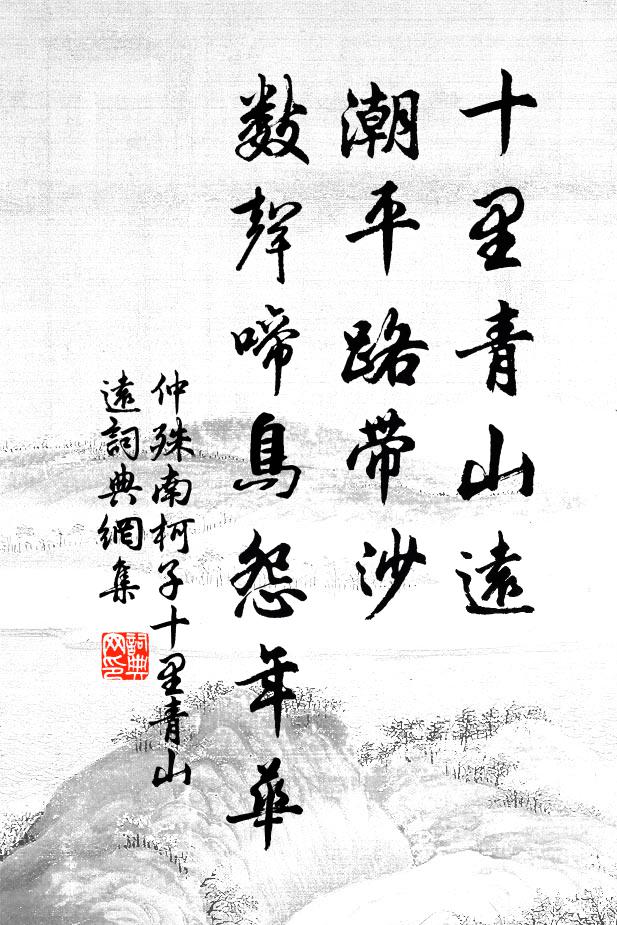 十里青山遠
潮平路帶沙
數聲啼鳥怨年華
仲殊南柯子十里青山
遠詞典網集
詞典
网印